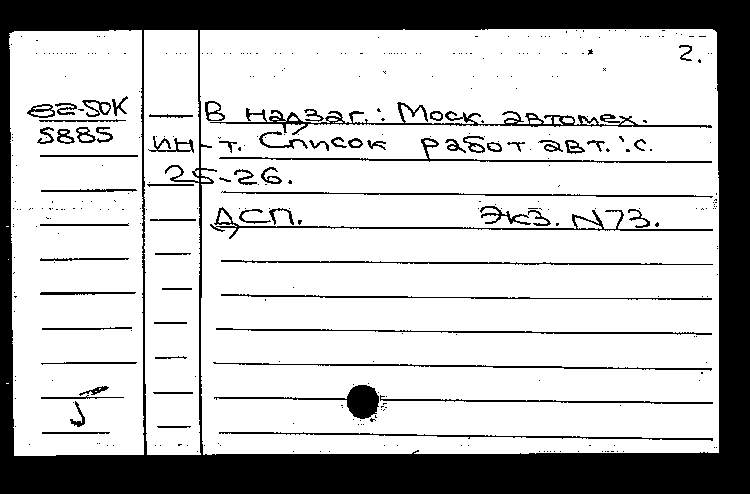 2.
В надзаг.: Моск. автомех.
ин-т. Список работ авт.: с.
25-26.
ДСП. Экз. N73.
82-50К
5885